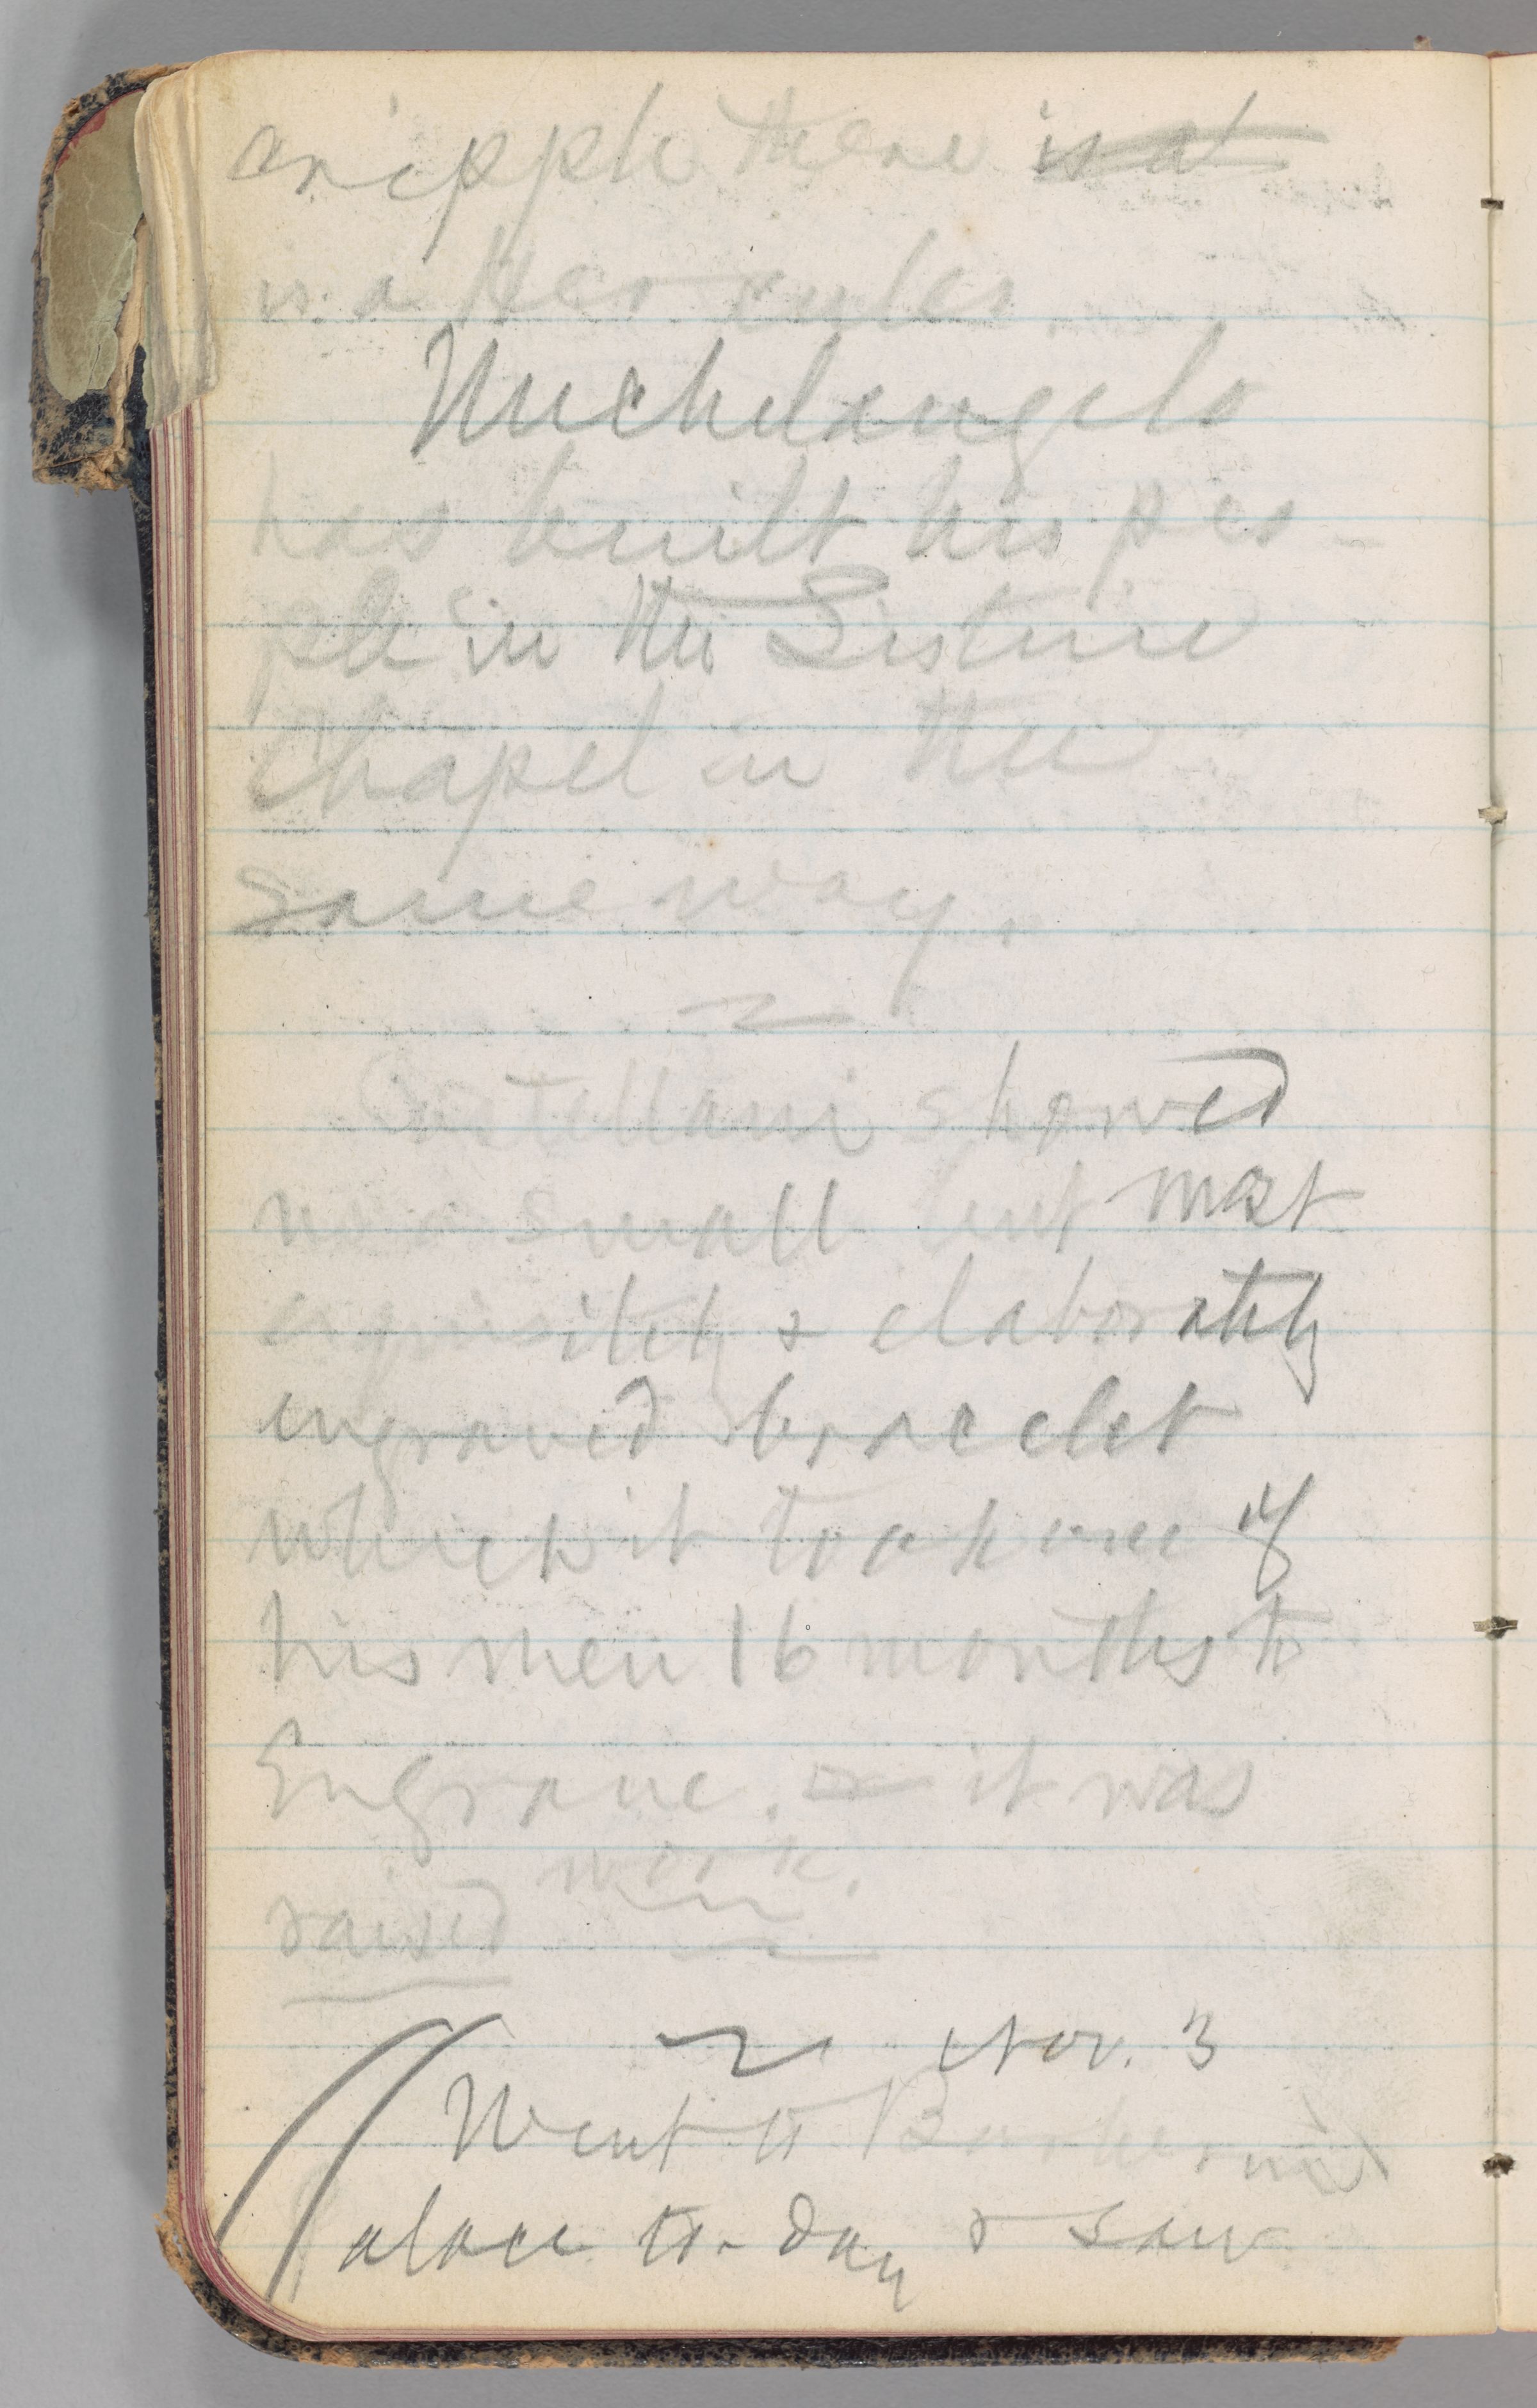 cripple there is at
is a Hercules.
Michelangelo
has built his peo
ple in the Sistine
chapel in the
same way.
Castellani showed
us a small but most
exquisitely & elaborately
engraved bracelet
which it took one of
his men 16 months to
Engrave. — it was
raised work.
Nov. 3
Went to Barberini
Palace to-day & saw